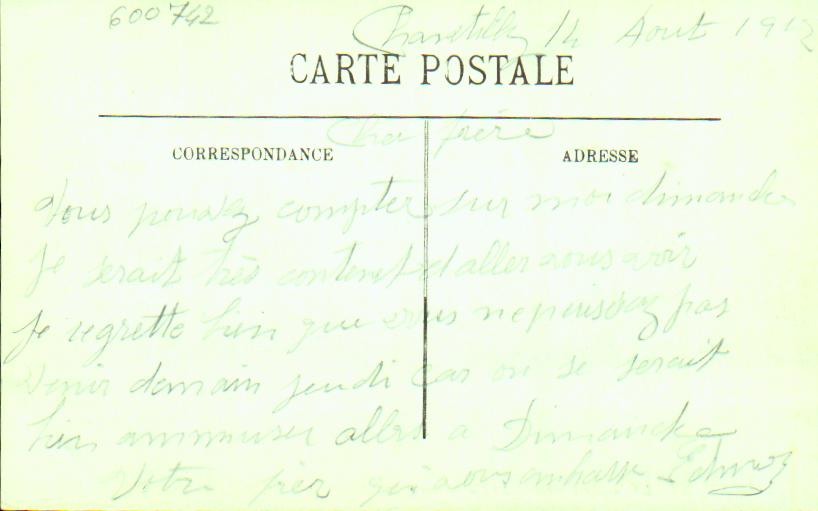 600742
Chantilly 14 Aout 1912
CARTE POSTALE
Cher frère
CORRESPONDANCE
ADRESSE
Vous pouvez compter sur moi dimanche
Je serait très contenet d'aller vous voir
Je regrette bien que vous ne puissiez pas
Venir demain jeudi car on se serait
bien ammuser allez a Dimanche
Votre frèr qui vous ambrasse